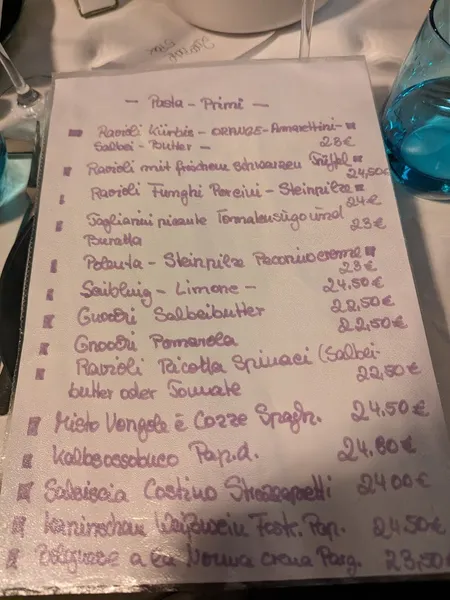 - Pasta - Primi -
Ravioli Kürbis - ORANGE - Amarettini -
Salbei - Butter - 23€
Ravioli mit frischem schwarzen Trüffel
24,50€
Ravioli Funghi Porcini - Steinpilze
24€
Tagliarini pisante Tomatensugo und
23€
Buratta
Polenta - Steinpilze Pecorinocreme
23€
Saibling - Limone - 24,50€
Gnocchi Salbeibutter 22,50€
22,50€
Gnocchi Pomarola
Ravioli Ricotta Spinaci (Salbei-
butter oder Tomate 22,50€
Misto Vongole e Cozze Spagh. 24.50€
Kalbsossobuco Pap.d. 24.80€
Salsiccia Costino Strozzapretti 2400€
Kaninchen Weißwein Pap. 24,50€
a la Norma crema Parg. 23,50€